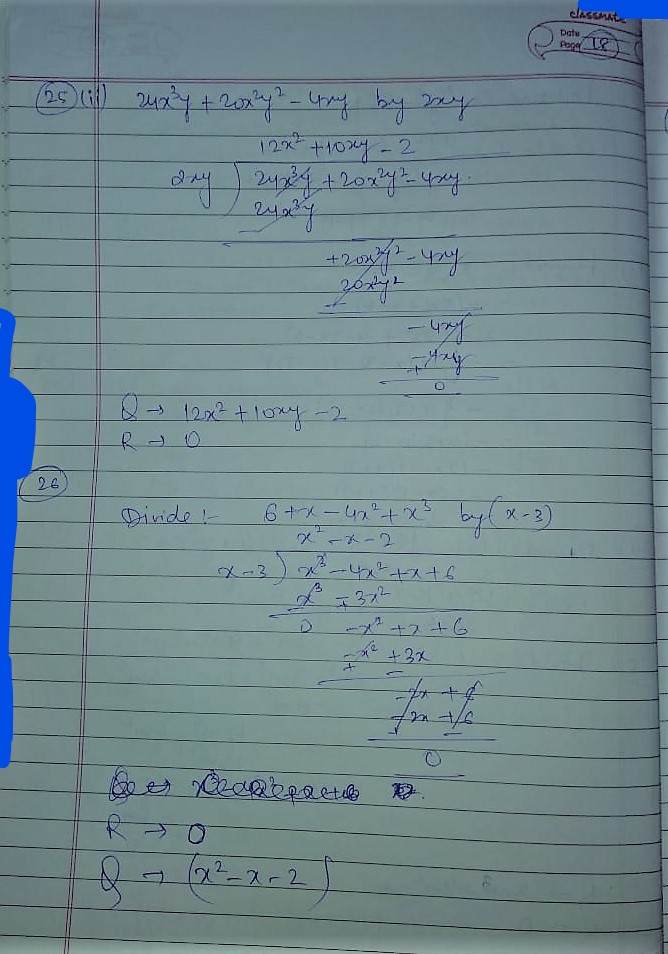 classmate
Date
Page 18
25 (ii) 24x³y + 20x²y² - 4xy by 2xy
12x² + 10xy - 2
2xy ) 24x³y + 20x²y² - 4xy.
24x³y
-
+20x²y² - 4xy
20x²y²
-
- 4xy
- 4xy
+
0
Q → 12x² + 10xy - 2
R → 0
26
Divide :- 6 + x - 4x² + x³ by (x - 3)
x² - x - 2
x - 3 ) x³ - 4x² + x + 6
x³ - 3x²
- +
0 - x² + x + 6
- x² + 3x
+ -
- 2x + 6
- 2x + 6
+ -
0
R → 0
Q → (x² - x - 2)